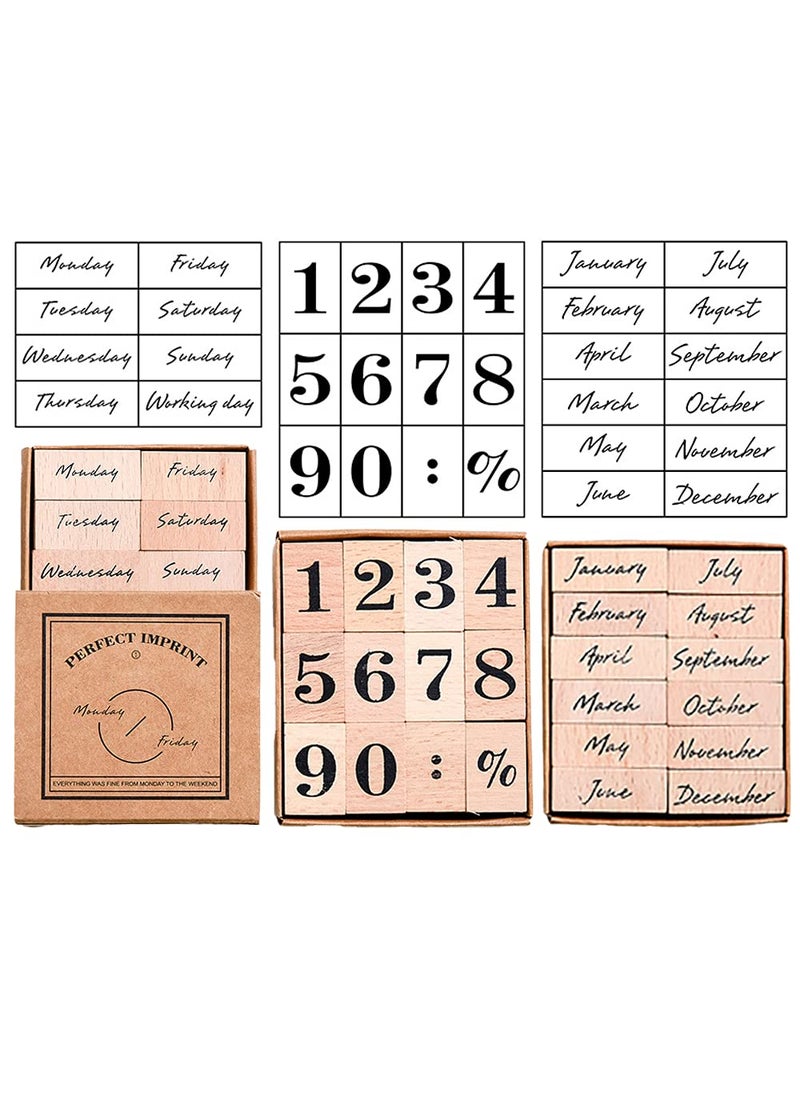 Monday Friday
Tuesday Saturday
Wednesday Sunday
Thursday Working day
1 2 3 4
5 6 7 8
9 0 : %
January July
February August
April September
March October
May November
June December
Monday Friday
Tuesday Saturday
Wednesday Sunday
PERFECT IMPRINT
Monday
Friday
EVERYTHING WAS FINE FROM MONDAY TO THE WEEKEND
1 2 3 4
5 6 7 8
9 0 : %
January July
February August
April September
March October
May November
June December